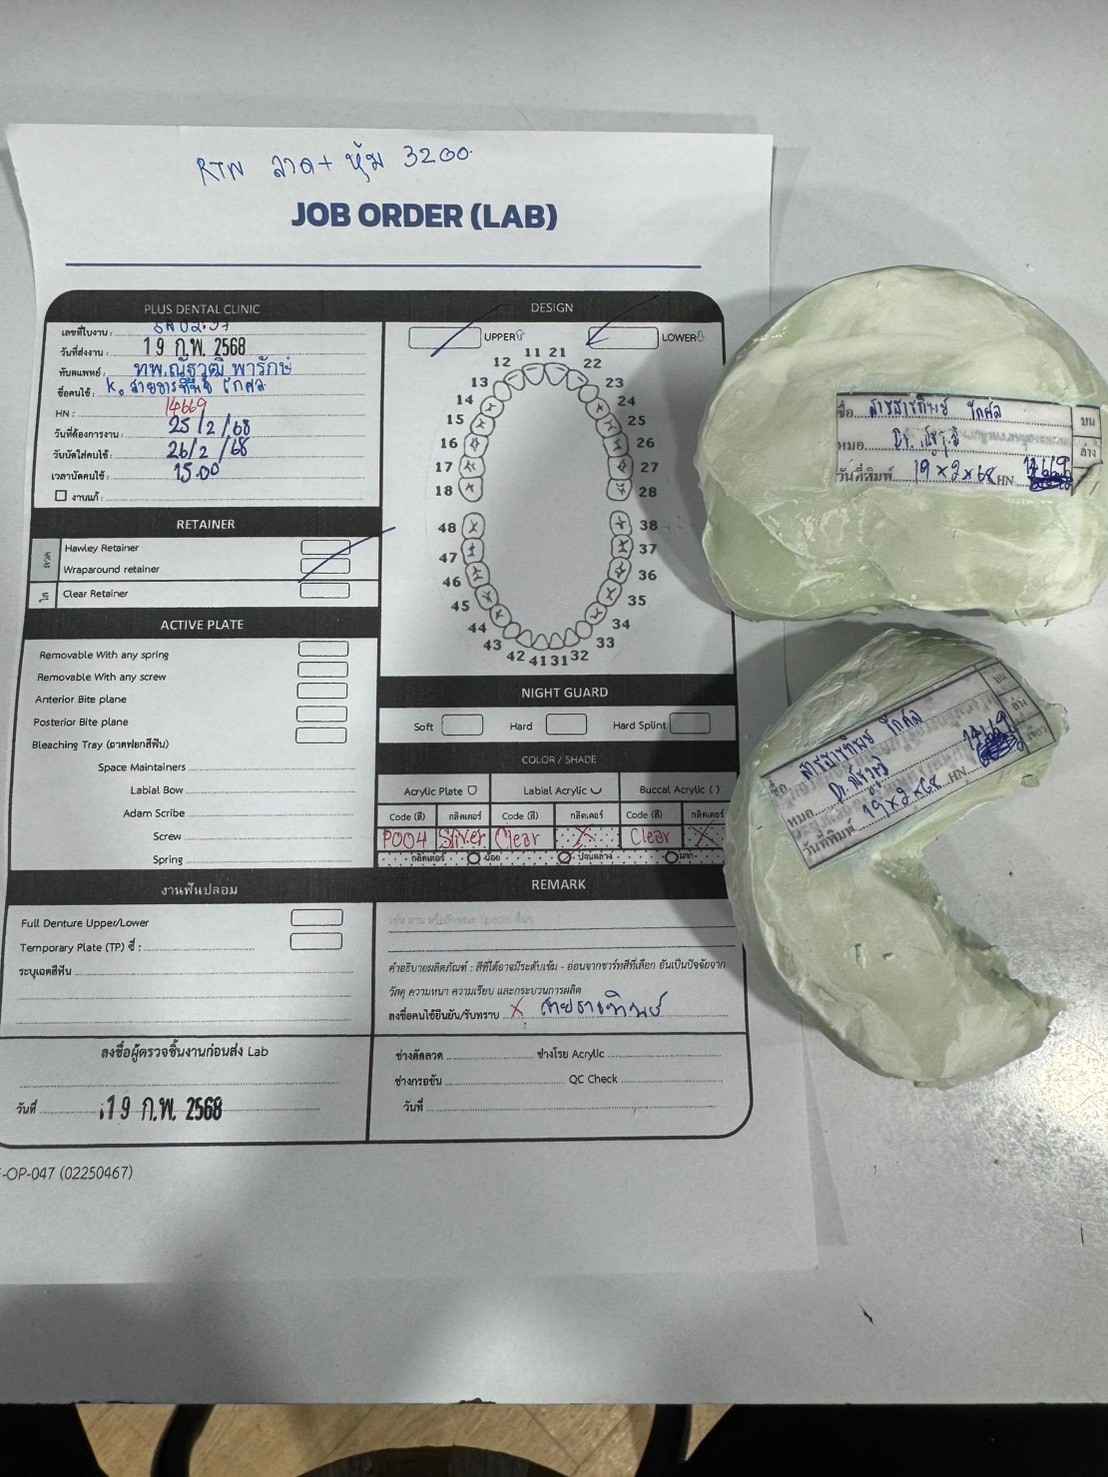 RTN ลวด + หุ้ม 3200
JOB ORDER (LAB)
PLUS DENTAL CLINIC
เลขที่ใบงาน :
วันที่ส่งงาน : 19 ก.พ. 2568
ทันตแพทย์ : ทพ.ณัฐวุฒิ พารักษ์
ชื่อคนไข้ : K.
HN : 14669
วันที่ต้องการงาน : 25/2/68
วันนัดใส่คนไข้ : 26/2/68
เวลานัดคนไข้ : 15.00
งานแก้ :
RETAINER
ลวด
Hawley Retainer
Wraparound retainer
ใส
Clear Retainer
ACTIVE PLATE
Removable With any spring
Removable With any screw
Anterior Bite plane
Posterior Bite plane
Bleaching Tray (ถาดฟอกสีฟัน)
Space Maintainers
Labial Bow
Adam Scribe
Screw
Spring
งานฟันปลอม
Full Denture Upper/Lower
Temporary Plate (TP) ซี่ :
ระบุเฉดสีฟัน
ลงชื่อผู้ตรวจชิ้นงานก่อนส่ง Lab
วันที่ 19 ก.พ. 2568
DESIGN
UPPER LOWER
11 21
12 22
13 23
14 24
15 25
16 26
17 27
18 28
48 38
47 37
46 36
45 35
44 34
43 33
42 41 31 32
NIGHT GUARD
Soft Hard Hard Splint
COLOR / SHADE
Acrylic Plate Labial Acrylic Buccal Acrylic ( )
Code (สี) กลิตเตอร์ Code (สี) กลิตเตอร์ Code (สี) กลิตเตอร์
P004 Sliver Clear X Clear X
กลิตเตอร์ น้อย ปานกลาง มาก
REMARK
คำอธิบายผลิตภัณฑ์ : สีที่ได้อาจมีระดับเข้ม - อ่อนจากชาร์ทสีที่เลือก อันเป็นปัจจัยจาก
วัสดุ ความหนา ความเรียบ และกระบวนการผลิต
ลงชื่อคนไข้ยืนยัน/รับทราบ X สายธารทิพย์
ช่างดัดลวด ช่างโรย Acrylic
ช่างกรอขัน QC Check
วันที่
-OP-047 (02250467)
ชื่อ สายธารทิพย์ บน
หมอ Dr. ล่าง
วันที่พิมพ์ 19 x 2 x 68 HN 14669
ชื่อ สายธารทิพย์ บน
หมอ Dr. ณัฐวุฒิ ล่าง
วันที่พิมพ์ 19 x 2 x 68 HN 14669